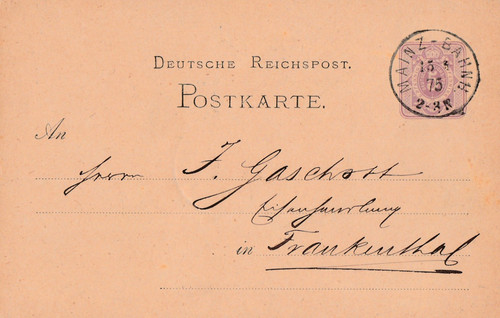 DEUTSCHE REICHSPOST.
POSTKARTE.
MAINZ-BAHNH
15
75
2-3N
An
Herrn F. Gaschott
Eisenhandlung
in Frankenthal